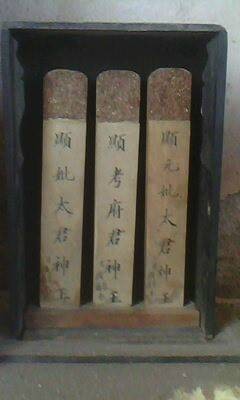 顯元妣太君神主
顯考府君神主
顯妣太君神主